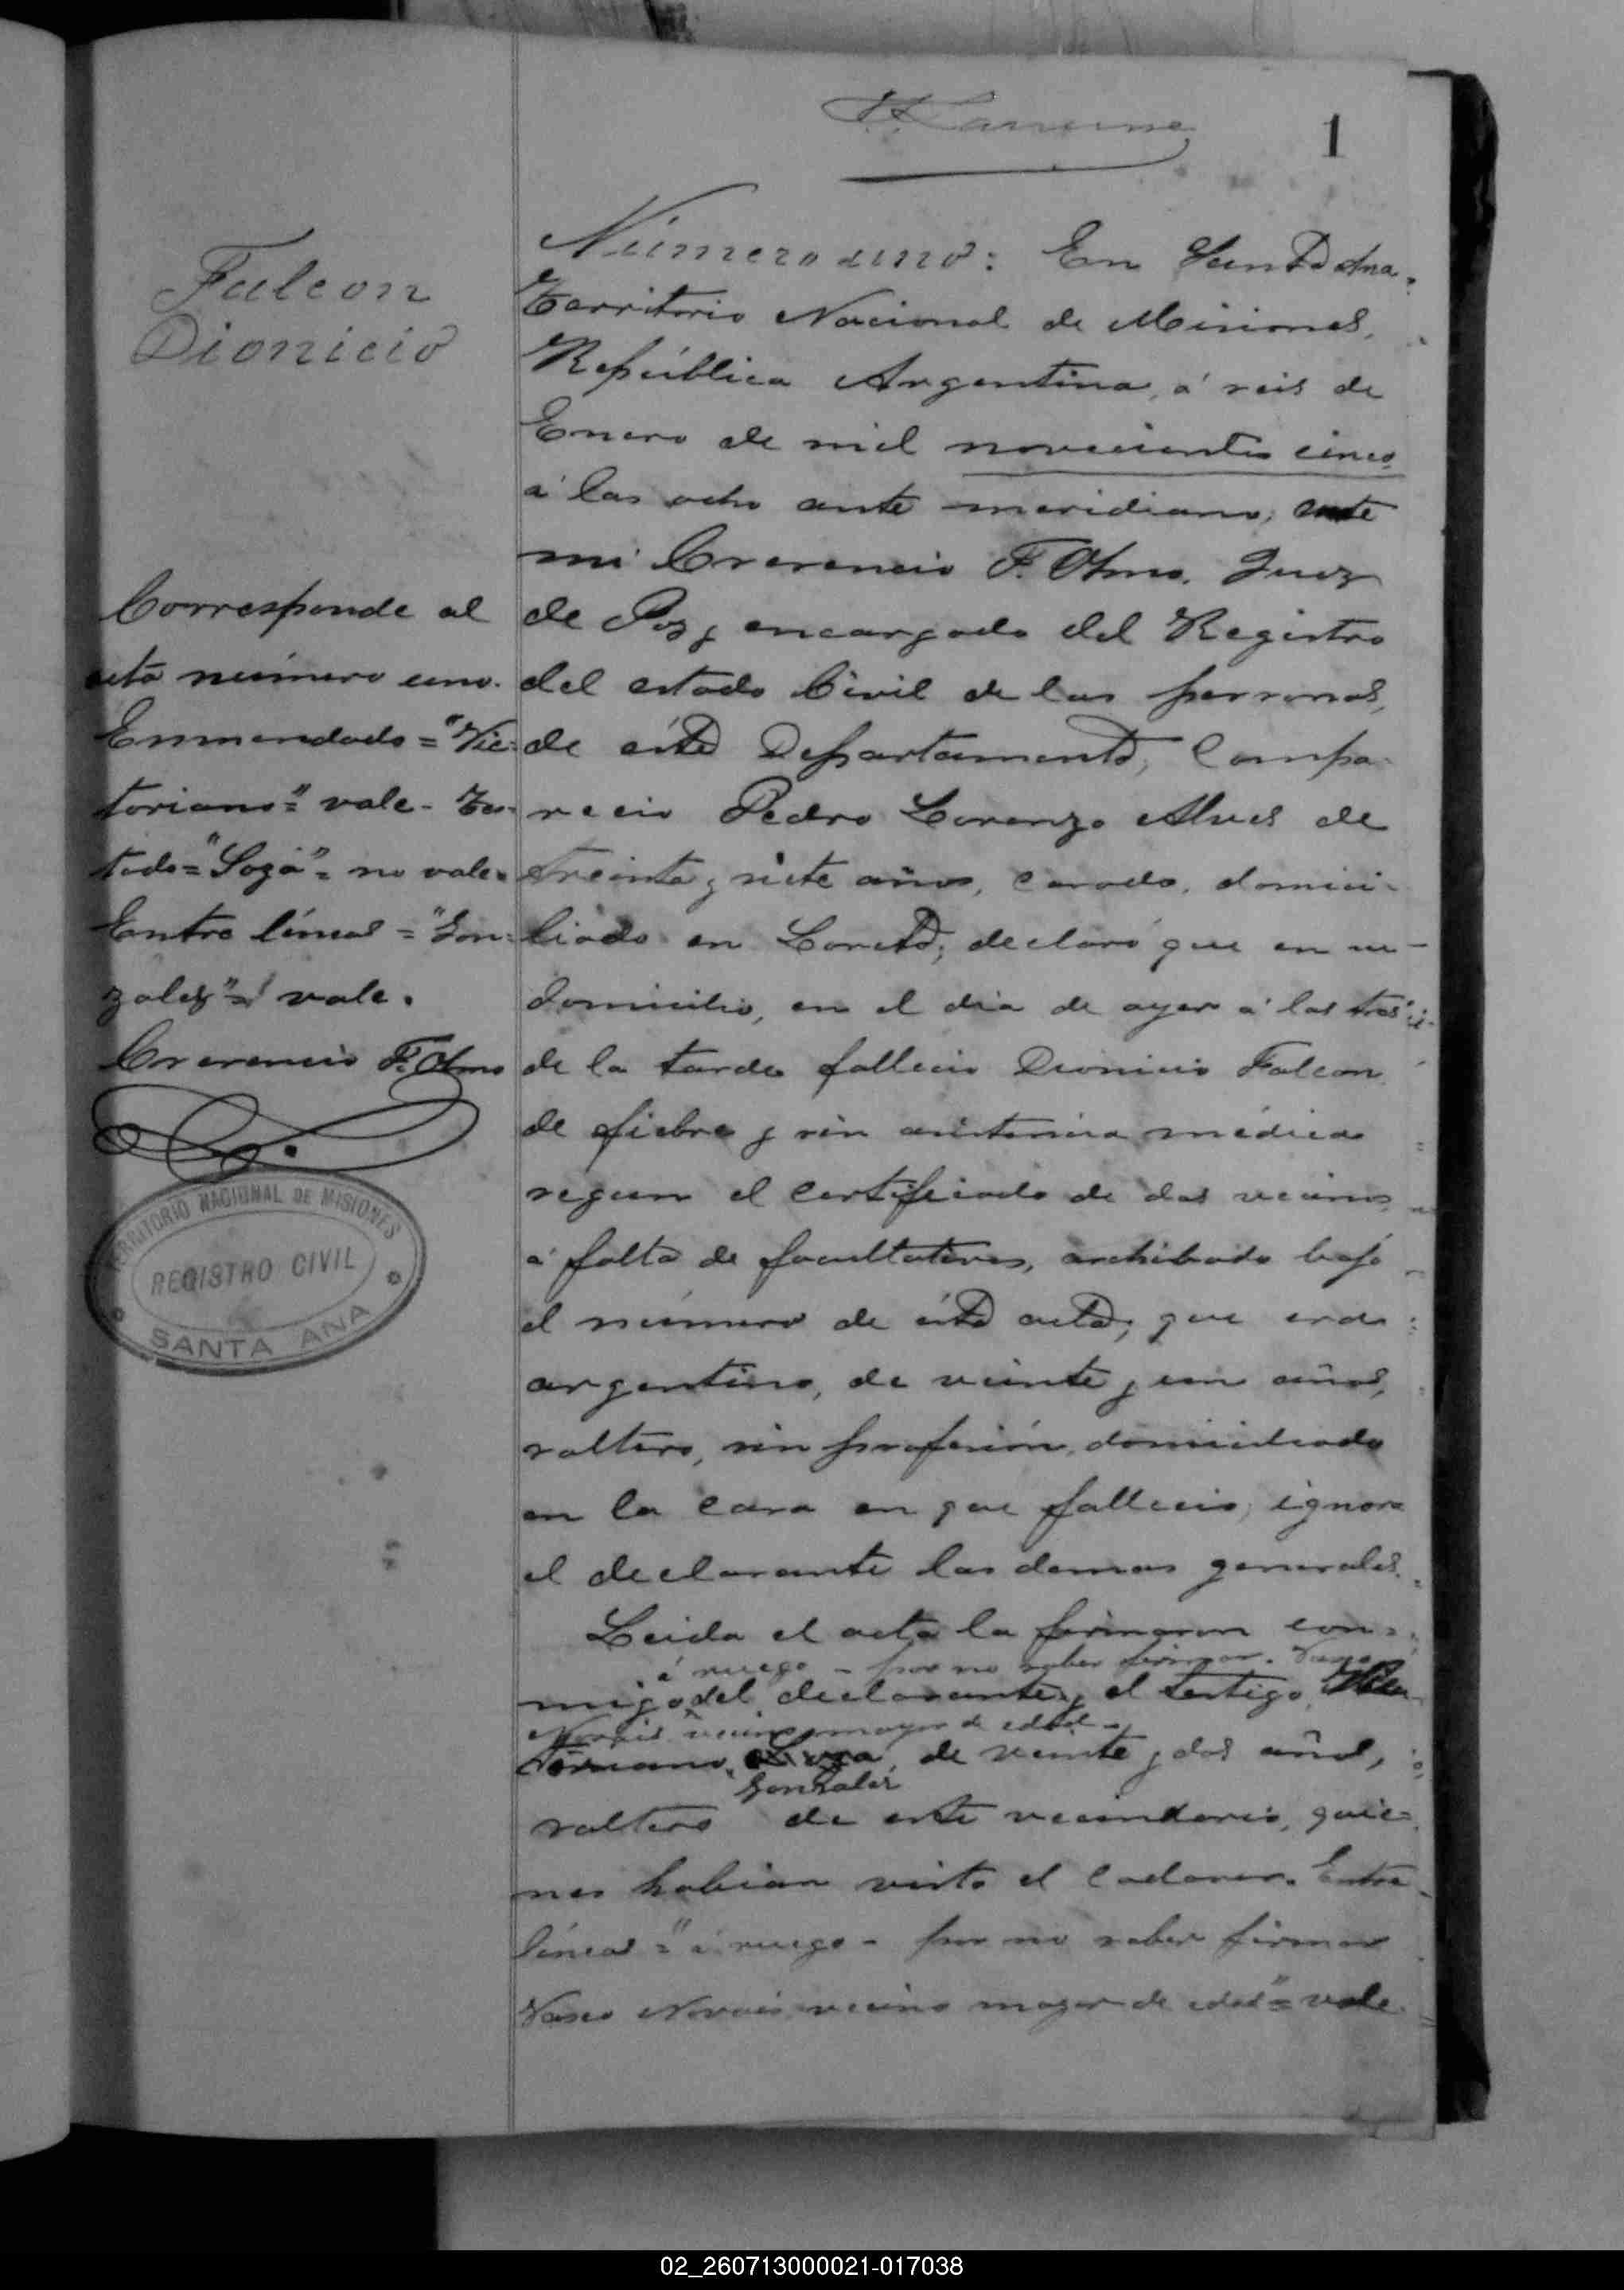 1
Falcon
Dionicio
Número uno: En Santa Ana
Territorio Nacional de Misiones,
República Argentina, á seis de
Enero de mil novecientos cinco
á las ocho ante meridiano, ante
mi Crecencio F. Olmo, Juez
de Paz y encargado del Registro
del estado Civil de las personas,
de éste Departamento, Compa-
recio Pedro Lorenzo Alves de
treinta y siete años, casado, domici-
liado en Loreto; declaró que en su
domicilio, en el dia de ayer á las tres
de la tarde fallecio Dionicio Falcon
de fiebre y sin asistencia médica
segun el certificado de dos vecinos
á falta de facultativos, archibado bajo
el número de ésta acta; que era
argentino, de veinte y un años,
soltero, sin profesión, domiciliado
en la casa en que fallecio; ignora
el declarante las demas generales.
Leida el acta la firmaron con-
á ruego - por no saber firmar. Vasco
migo del declarante, y el testigo, Vic
Novais vecino mayor de edad -
toriano Soza, de veinte y dos años,
Gonzalez
soltero de este vecindario, quie-
nes habian visto el cadaver. Entre
líneas = "á ruego - por no saber firmar
Vasco Novais vecino mayor de edad" = vale
Corresponde al
acta número uno.
Enmendado = "Vic-
toriano" = vale - Tes-
tado = "Soza" = no vale =
Entre líneas = "Gon-
zalez" = vale.
Crecencio F. Olmo
TERRITORIO NACIONAL DE MISIONES
REGISTRO CIVIL
SANTA ANA
02_260713000021-017038